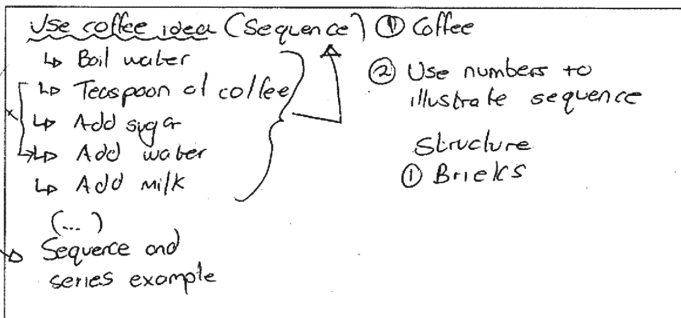 Use coffee idea (Sequence) ① Coffee
↳ Boil water
↳ Teaspoon of coffee
↳ Add sugar
↳ Add water
↳ Add milk
(...)
Sequence and
series example
② Use numbers to
illustrate sequence
Structure
① Bricks